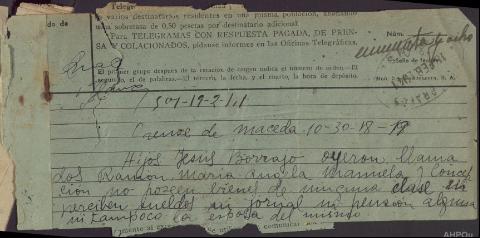 do de
Telegramas
a varios destinatarios residentes en una misma población, abonando
una sobretasa de 0,50 pesetas por destinatario adicional
Para TELEGRAMAS CON RESPUESTA PAGADA, DE PREN-
SA Y COLACIONADOS, pídanse informes en las Oficinas Telegráficas.
Núm.
El primer grupo después de la estación de origen indica el número de orden.—El
segundo, el de palabras.—El tercero, la fecha, y el cuarto, la hora de depósito.
Orense de maceda 10-30-18-18
Hijos Jesus Borrajo oyeron llama
dos Ramon Maria Angela Manuela y Conce
cion no poseen bienes de ninguna clase ni
perciben sueldos ni jornal ni pension alguna
ni tampoco la esposa del mismo
AHPOu